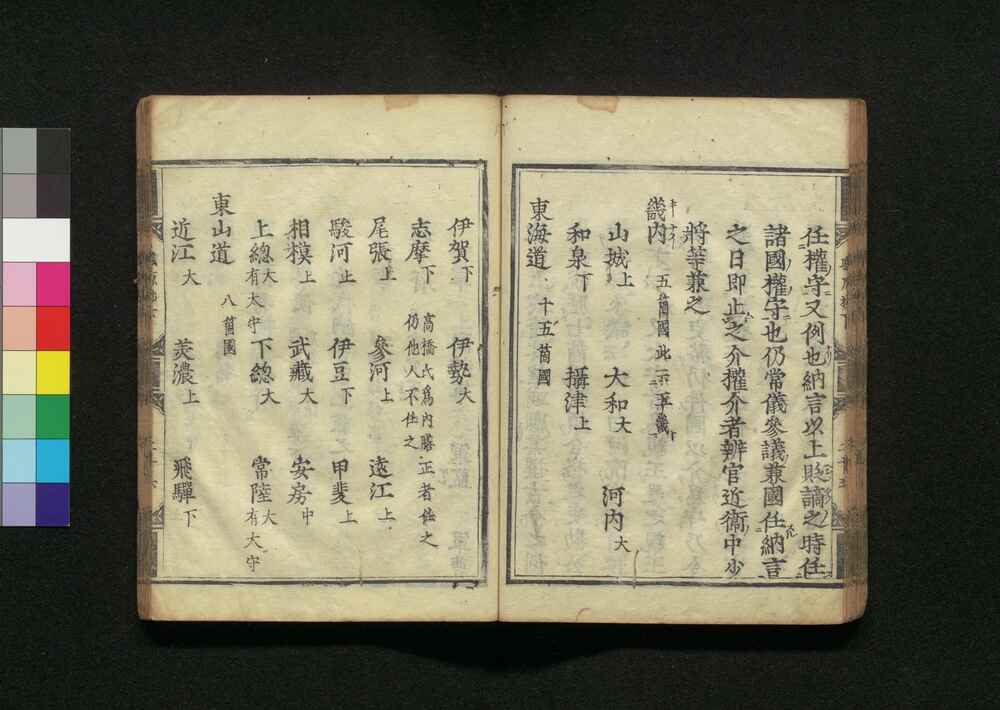 任權守又例也納言以上貶謫之時任
諸國權守也仍常儀參議兼國任納言
之日即止之介權介者辨官近衞中少
將等兼之
畿内 五箇國此云
山城上 大和大 河内大
和泉下 攝津上
東海道 十五箇國
伊賀下 伊勢大
志摩下 高橋氏爲内膳正者任之
仍他人不任之
尾張上 參河上 遠江上
駿河上 伊豆下 甲斐上
相模上 武藏大 安房中
上總大有大守 下總大 常陸大有大守
東山道 八箇國
近江大 美濃上 飛驒下